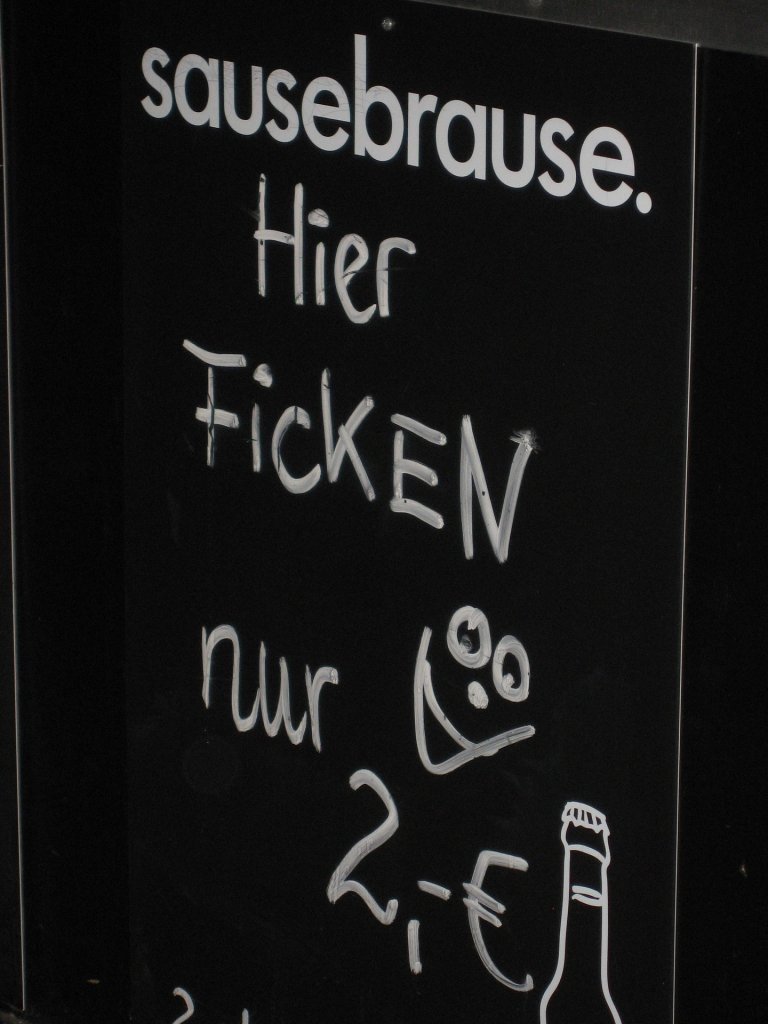 sausebrause.
Hier
FicKEN
nur
2,-€